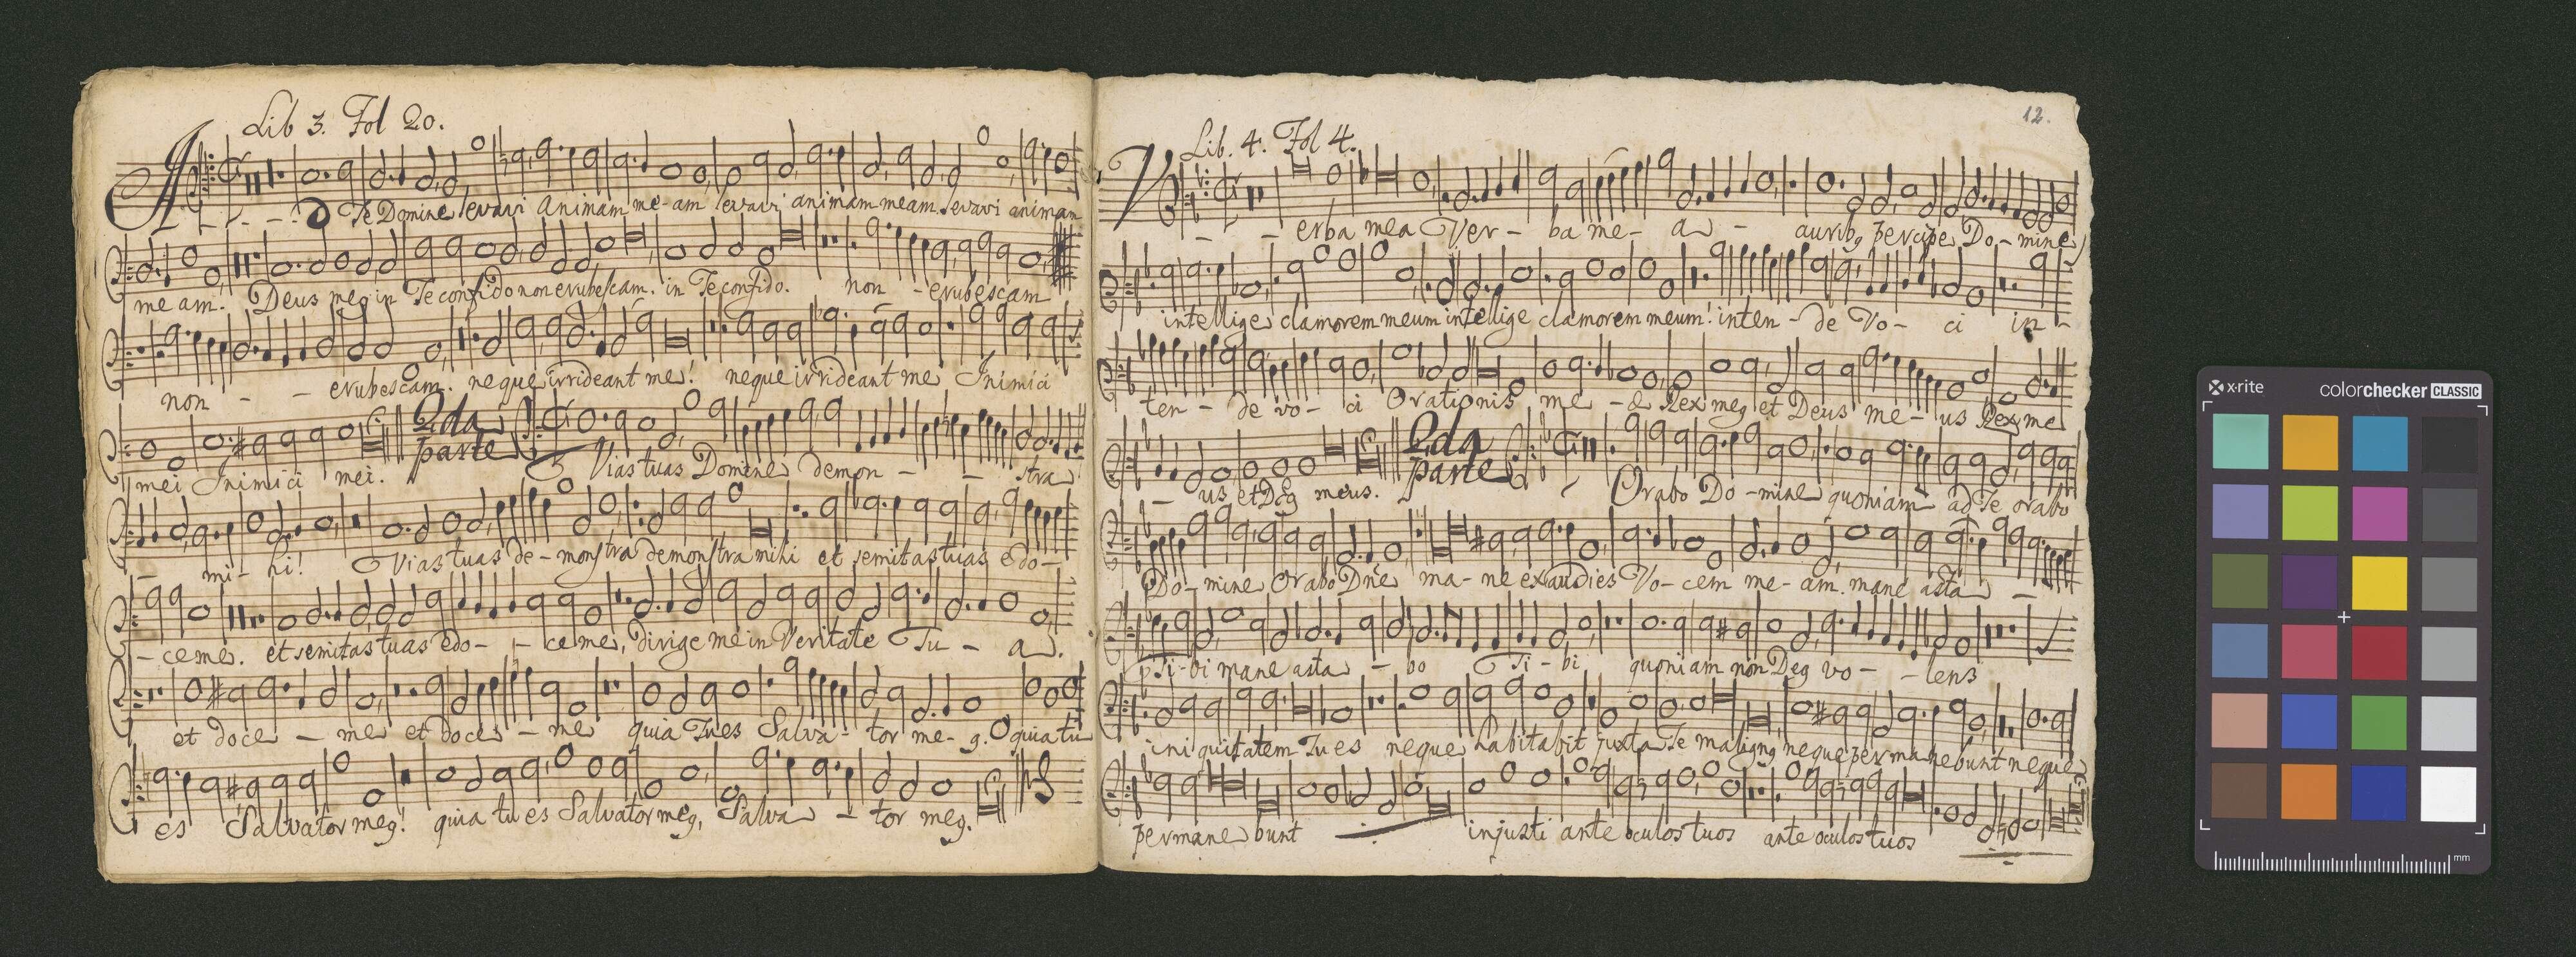 Lib 3. Fol 20.
AD Te Domine levavi animam me-am levavi animam meam. levavi animam
me am. Deus meq in Te confido non erubescam. in Te confido. non - erubescam
non - - erubescam. neque irrideant me! neque irrideant me Inimici
mei Inimici mei. 2.da parte Vias tuas Domine demon - - stra
- mi- hi! Vias tuas de-monstra demonstra mihi et semitas tuas edo-
- ce me. et semitas tuas edo- - ce me, dirige me in Veritate Tu - a.
et doce - me et doce - me quia Tu es Salva- tor me- q. quia tu
es Salvator meq! quia tu es Salvator meq, Salva - tor meq.
12.
Lib. 4. Fol 4.
Verba mea Ver- ba me- a - auribq percipe Do- mine
intellige clamorem meum intellige clamorem meum! inten - de Vo- ci in-
ten - de vo- ci Orationis me - æ Rex meq et Deus me- us Rex me
- us et Deq meus. 2.da parte Orabo Do -mine quoniam ad Te orabo
Do- mine Orabo Dñe ma- ne exaudies Vo- cem me- am. mane asta -
Ti-bi mane asta - bo Ti - bi quoniam non Deq vo- - lens
iniquitatem Tu es neque habitabit juxta Te malignq neque permanebunt neque
permane bunt injusti ante oculos tuos ante oculos tuos
x·rite colorchecker CLASSIC
mm